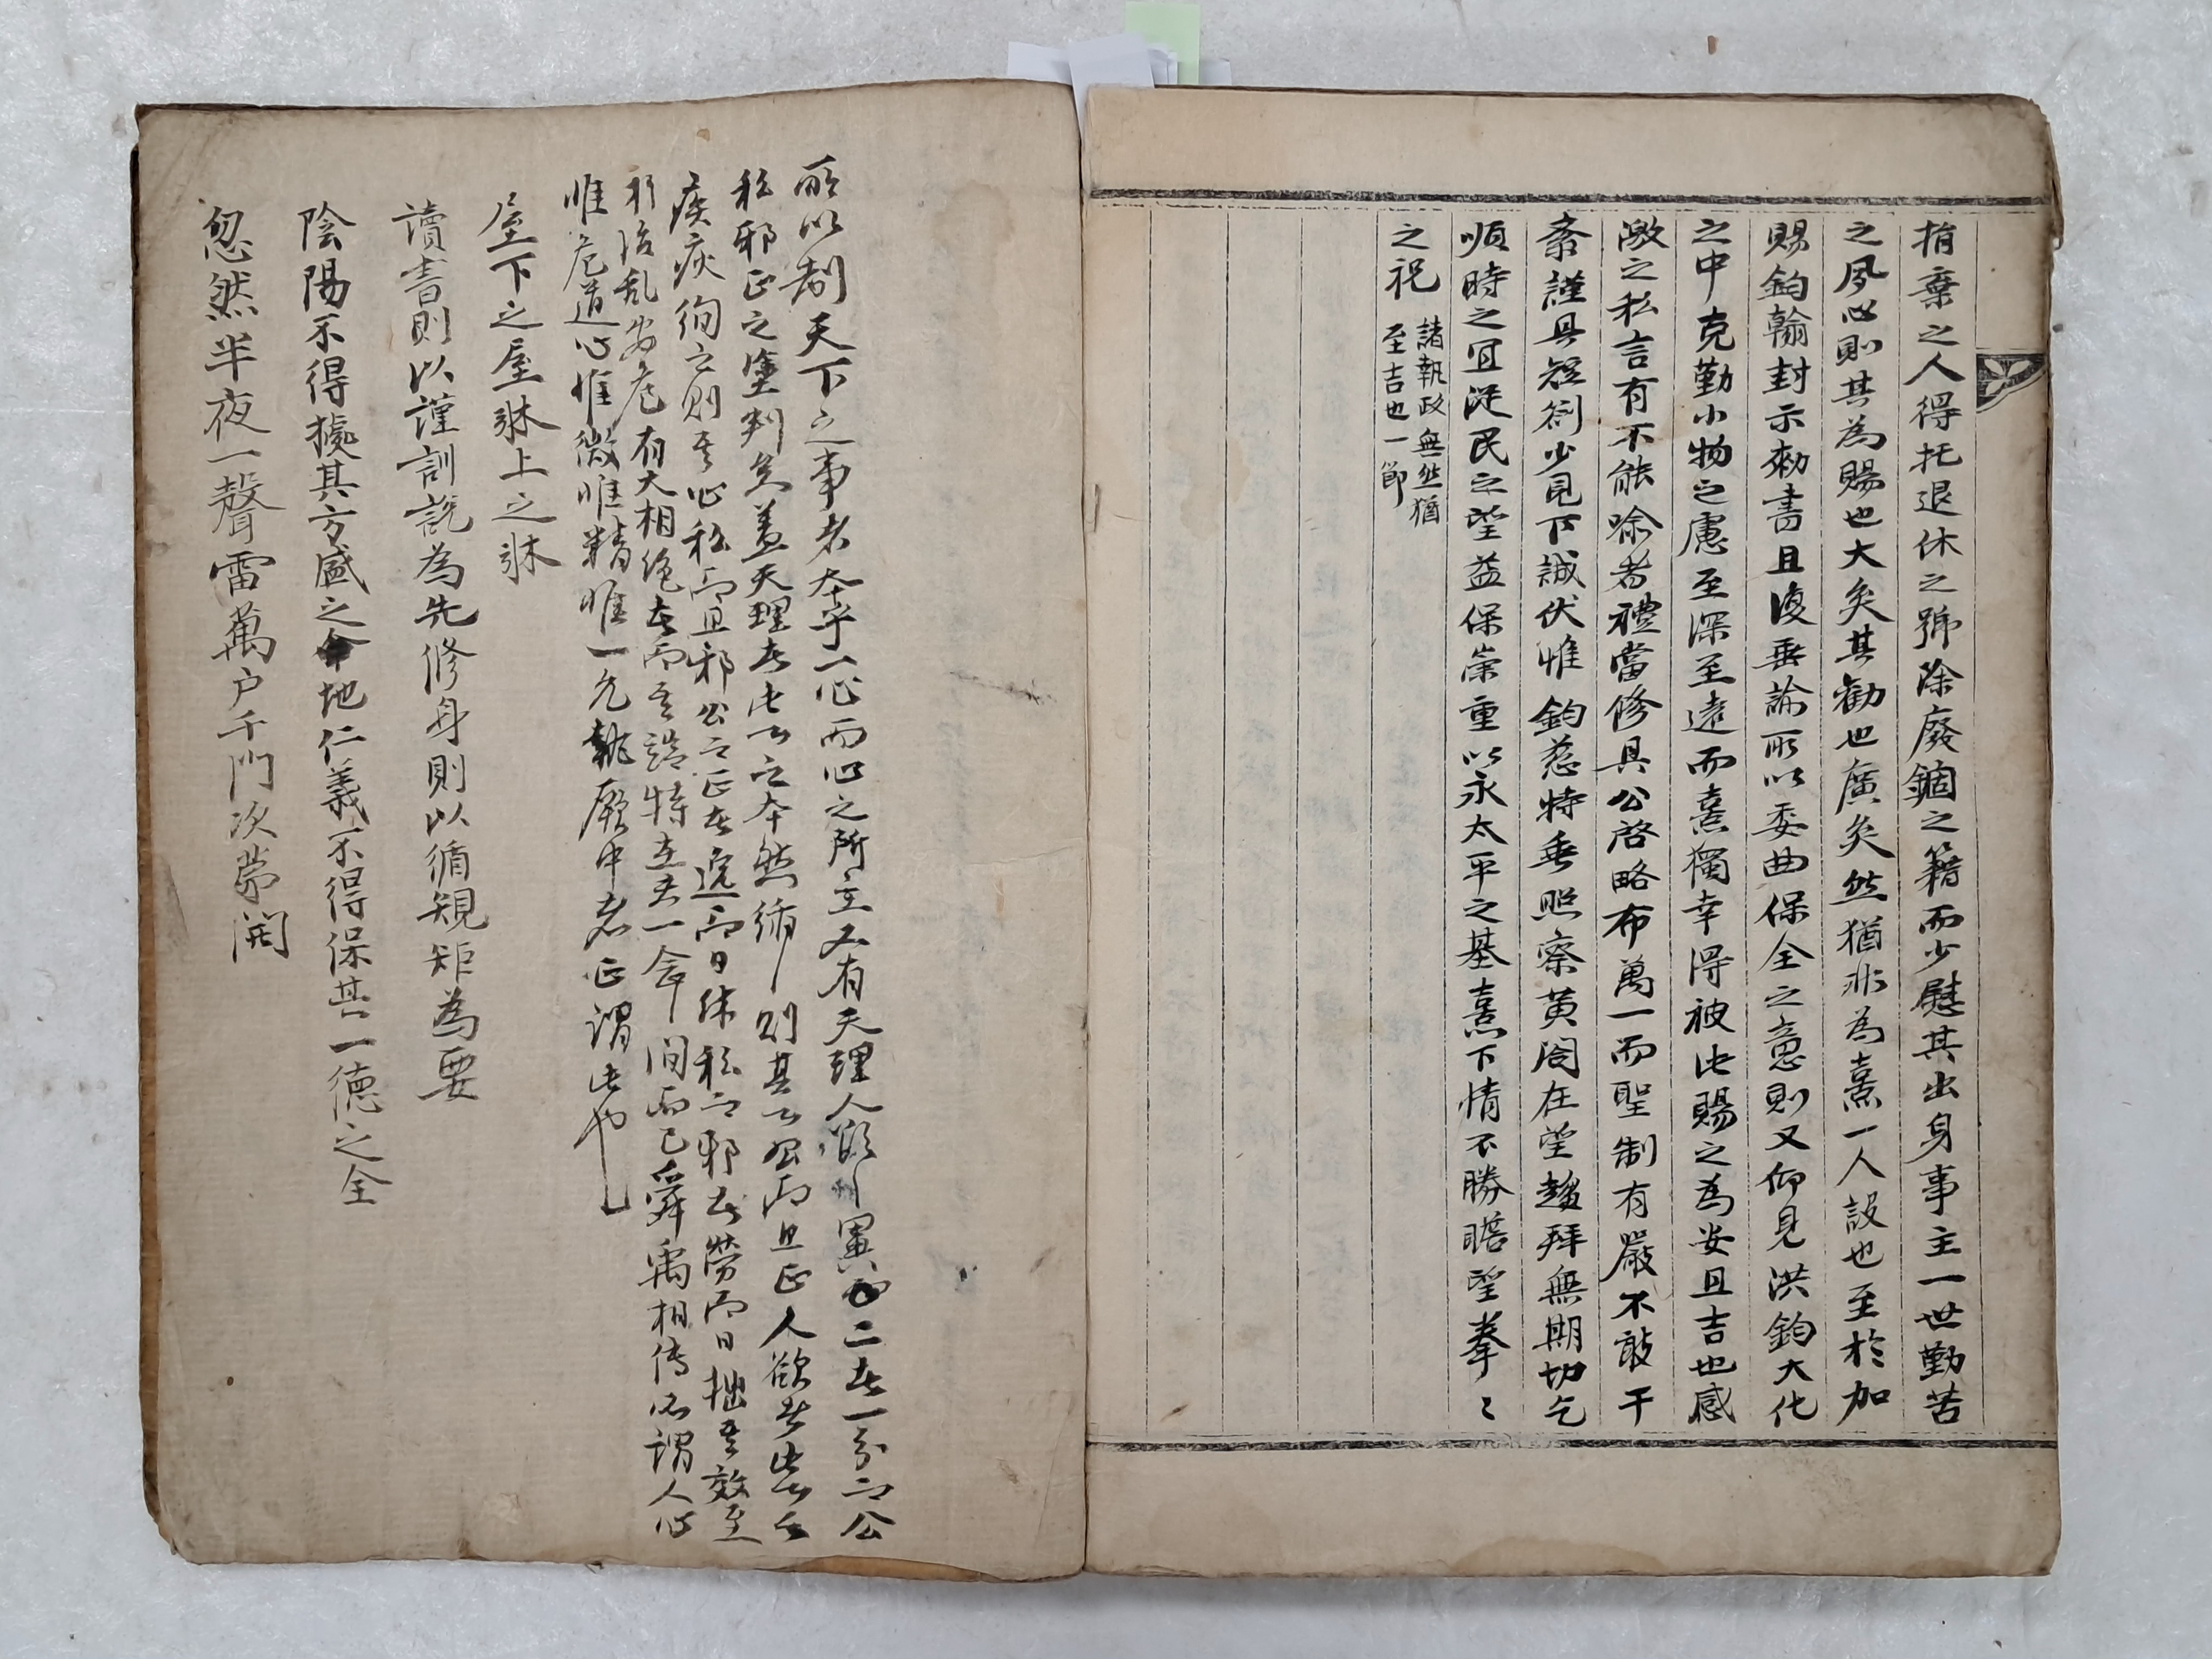 捐棄之人得托退休之號除廢錮之籍而少慰其出身事主一世勤苦
之夙心則其為賜也大矣其勸也廣矣然猶非為熹一人設也至於加
賜鈞翰封示勑書且復垂諭所以委曲保全之意則又仰見洪鈞大化
之中克勤小物之慮至深至遠而熹獨幸得被此賜之為安且吉也感
激之私言有不能喩者禮當修具公啓略布萬一而聖制有嚴不敢干
紊謹具短劄少見下誠伏惟鈞慈特垂照察黄閤在望趨拜無期切乞
順時之宜從民之望益保崇重以永太平之基熹下情不勝瞻望拳〻
之祝
諸執政無然猶
至吉也一節
所以制天下之事者本乎一心而心之所主又有天理人欲之異二者一分而公
私邪正之塗判矣盖天理者此心之本然循之則其心公而且正人欲者此心之
疾疢徇之則其心私而且邪公而正者逸而日休私而邪者勞而日拙其效至
於治乱安危有大相絶者而其端特在夫一念間而已舜禹相传所謂人心
惟危道心惟微惟精惟一允執厥中者正謂此也
屋下之屋牀上之牀
讀書則以謹訓說為先修身則以循規矩為要
陰陽不得擬其方盛之地仁義不得保其一德之全
忽然半夜一聲雷萬户千門次第開